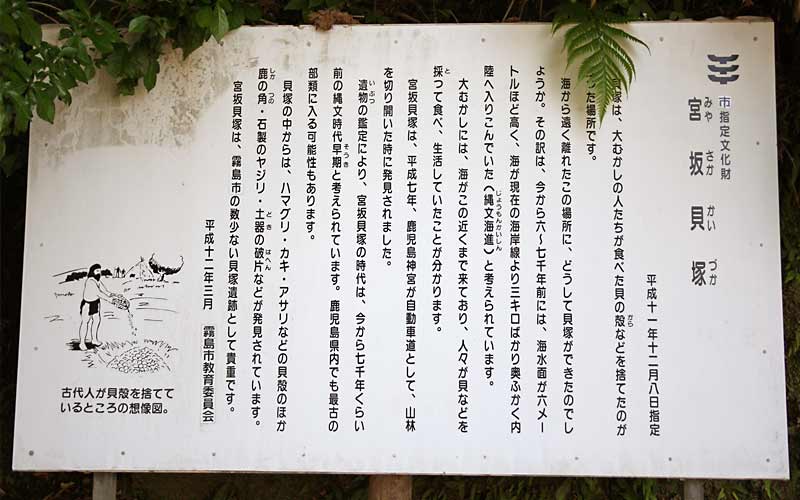 市指定文化財
宮坂貝塚
みやさかかいづか
平成十一年十二月八日指定
貝塚は、大むかしの人たちが食べた貝の殻などを捨てたのが
から
た場所です。
海から遠く離れたこの場所に、どうして貝塚ができたのでし
ょうか。その訳は、今から六～七千年前には、海水面が六メー
トルほど高く、海が現在の海岸線より三キロばかり奥ふかく内
陸へ入りこんでいた（縄文海進）と考えられています。
じょうもんかいしん
大むかしには、海がこの近くまで来ており、人々が貝などを
採って食べ、生活していたことが分かります。
と
宮坂貝塚は、平成七年、鹿児島神宮が自動車道として、山林
を切り開いた時に発見されました。
遺物の鑑定により、宮坂貝塚の時代は、今から七千年くらい
いぶつ
前の縄文時代早期と考えられています。鹿児島県内でも最古の
そうき
部類に入る可能性もあります。
貝塚の中からは、ハマグリ・カキ・アサリなどの貝殻のほか
鹿の角・石製のヤジリ・土器の破片などが発見されています。
しか つの どき はへん
宮坂貝塚は、霧島市の数少ない貝塚遺跡として貴重です。
平成十二年三月 霧島市教育委員会
古代人が貝殻を捨てて
いるところの想像図。